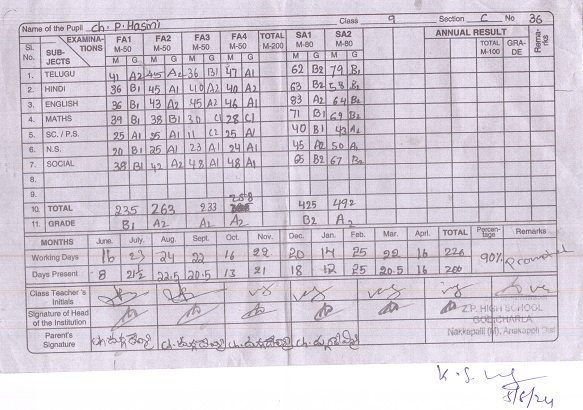 Name of the Pupil ch. P. Hasini Class 9 Section C No 36
Sl. No. SUBJECTS EXAMINATIONS FA1 M-50 FA2 M-50 FA3 M-50 FA4 M-50 TOTAL M-200 SA1 M-80 SA2 M-80 ANNUAL RESULT TOTAL M-100 GRADE Remarks
M G M G M G M G M G M G
1. TELUGU 41 A2 45 A2 36 B1 47 A1 62 B2 79 B1
2. HINDI 36 B1 45 A1 40 A2 40 A2 63 B2 58 B2
3. ENGLISH 36 B1 43 A2 45 A2 46 A1 83 A2 64 B2
4. MATHS 39 B1 38 B1 30 C1 28 C1 71 B1 69 B2
5. SC./ P.S. 25 A1 25 A1 11 C2 25 A1 40 B1 43 A2
6. N.S. 20 B1 25 A1 23 A1 24 A1 45 A2 50 A1
7. SOCIAL 38 B1 42 A2 48 A1 48 A1 65 B2 67 B2
8.
9.
10. TOTAL 235 263 233 258 425 492
11. GRADE B1 A2 A2 A2 B2 A2
MONTHS June. July. Aug. Sept. Oct. Nov. Dec. Jan. Feb. Mar. Aprl. TOTAL Percentage Remarks
Working Days 16 23 24 22 16 22 20 14 25 22 16 220 90% promoted
Days Present 8 21½ 22.5 20.5 13 21 18 12 25 20.5 16 200
Class Teacher's Initials
Signature of Head of the Institution
Z.P. HIGH SCHOOL
GODICHARLA
Nakkapalli (M), Anakapalli Dist
Parent's Signature